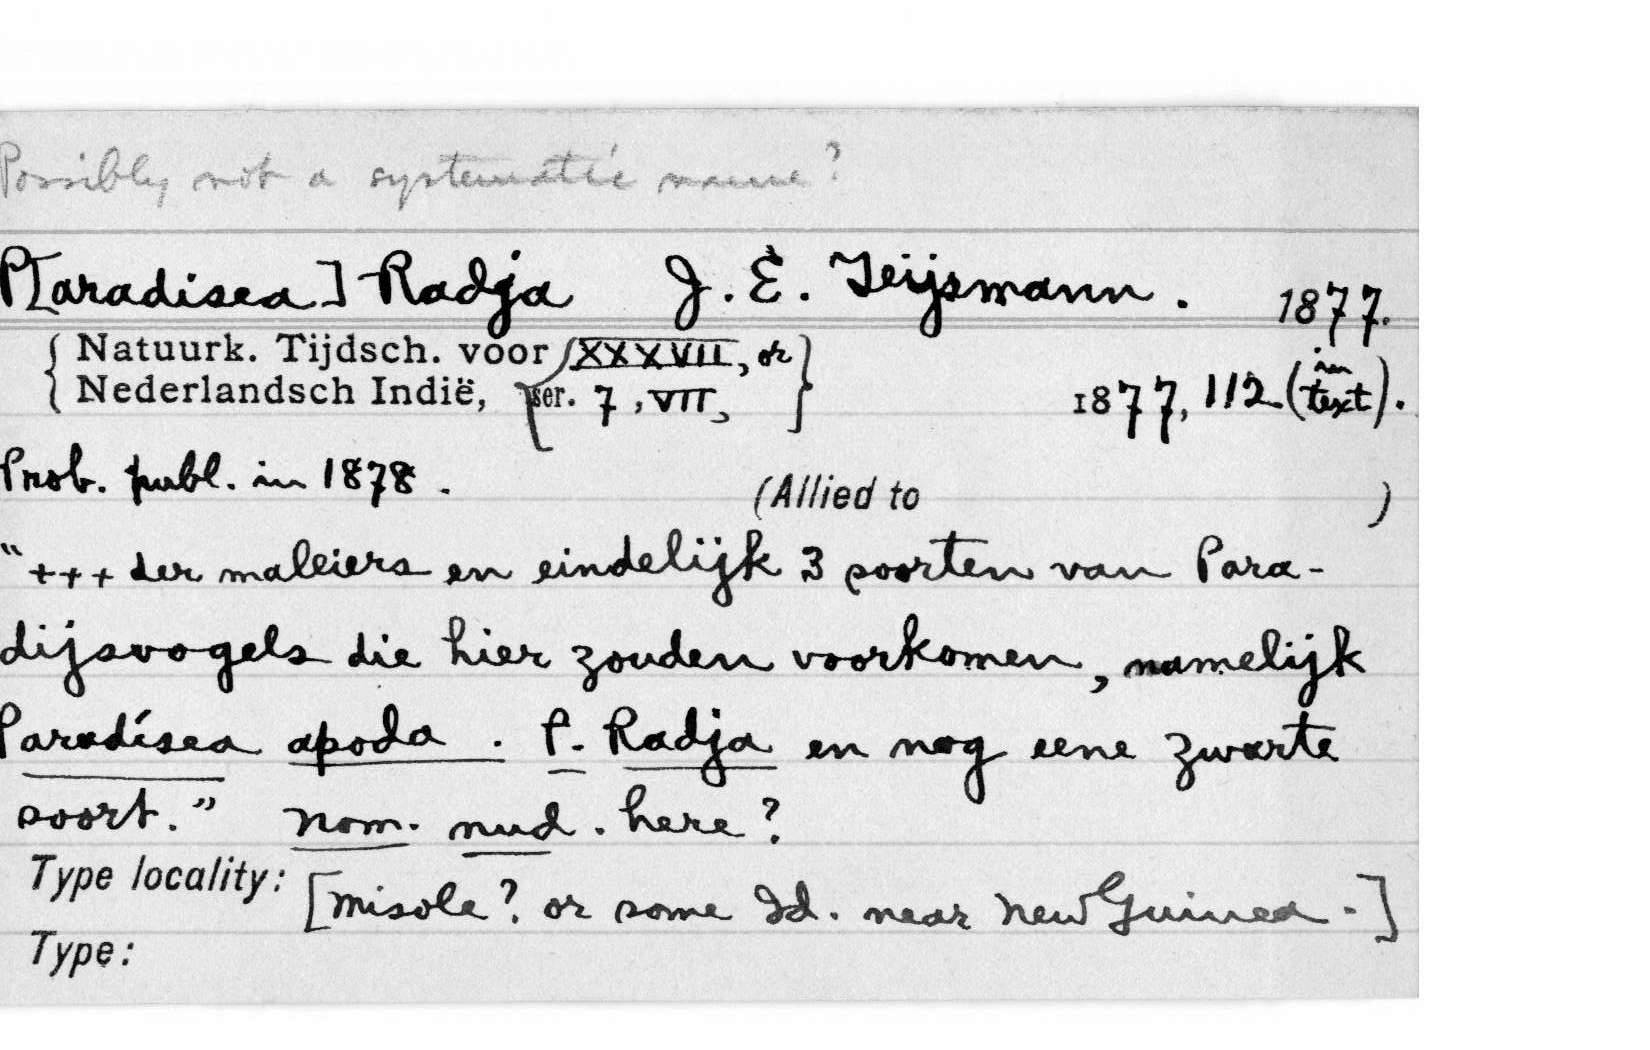 Possibly not a systematic name?
P[aradisea] Radja J. E. Teijsmann. 1877.
{ Natuurk. Tijdsch. voor { XXXVII, or }
{ Nederlandsch Indië, { ser. 7, VII, } 1877, 112 (in text).
Prob. publ. in 1878. (Allied to )
"+++ der maleiers en eindelijk 3 soorten van Para-
dijsvogels die hier zouden voorkomen, namelijk
Paradisea apoda. P. Radja en nog eene zwarte
soort." nom. nud. here?
Type locality: [Misole? or some Id. near New Guinea.-]
Type: